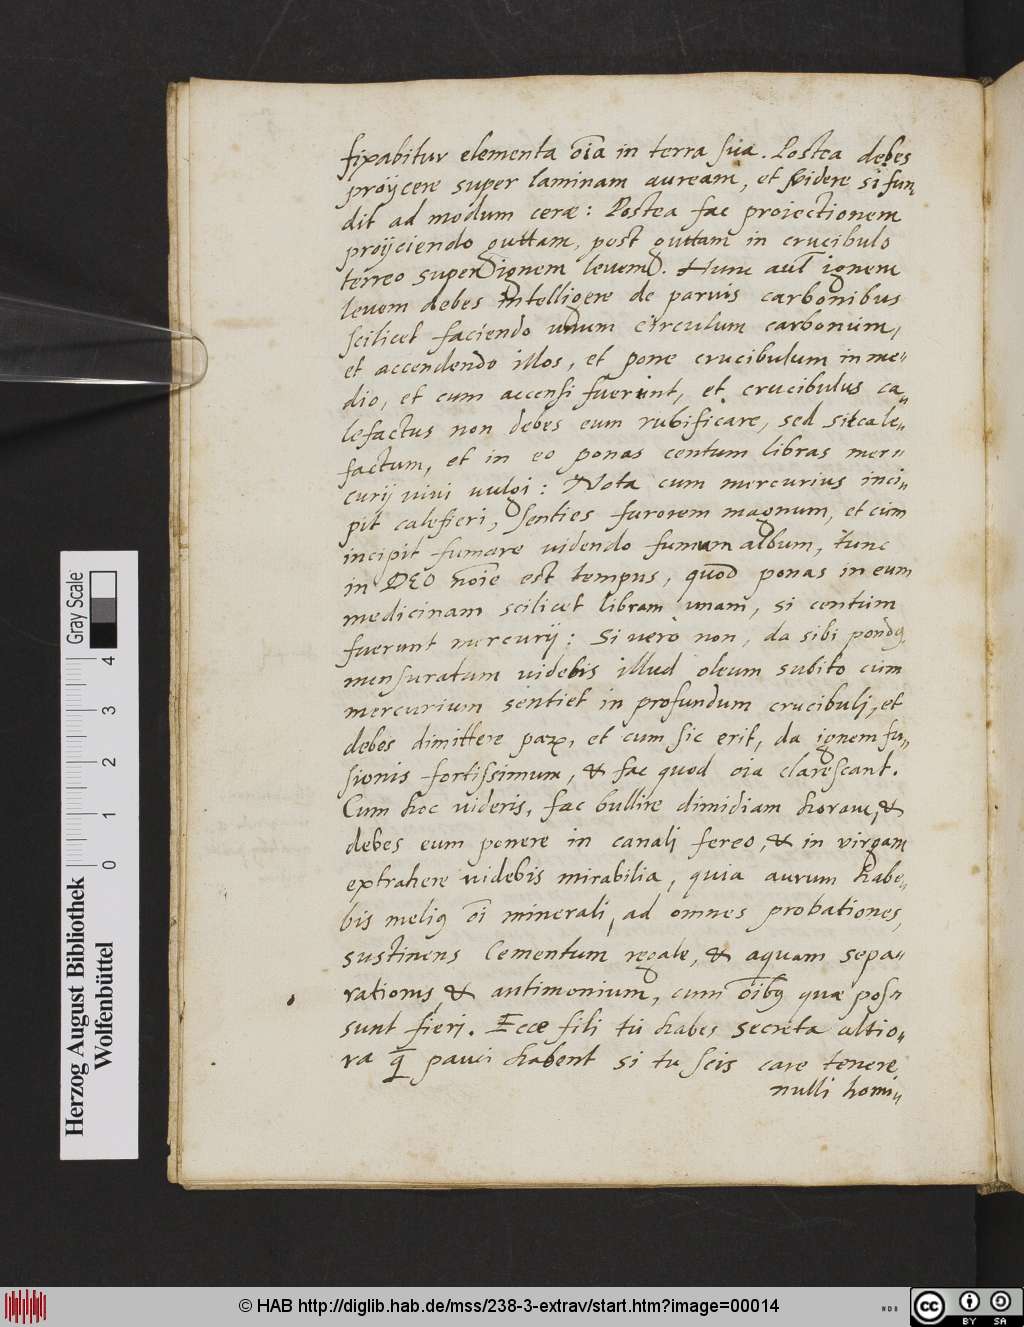 fixabitur elementa õia in terra sua. Postea debes
proijcere super laminam auream, et videre si fun
dit ad modum ceræ: Postea fac proiectionem
proijciendo guttam, post guttam in crucibulo
terreo super ignem levem. Hunc aut̃ ignem
levem debes intelligere de parvis carbonibus
scilicet faciendo unum circulum carbonum,
et accendendo illos, et pone crucibulum in me„
dio, et cum accensi fuerint, et crucibulus ca„
lefactus non debes eum rubificare, sed sit cale„
factum, et in eo ponas centum libras mer„
curij vivi vulgi: Nota cum mercurius inci„
pit calefieri, senties furorem magnum, et cum
incipit fumare videndo fumum album, tunc
in DEO nõie est tempus, quod ponas in eum
medicinam scilicet libram unam, si centum
fuerunt mercurij: Si vero non, da sibi pondꝰ
mensuratum videbis illud oleum subito cum
mercurium sentiet in profundum crucibulj, et
debes dimittere paꝝ, et cum sic erit, da ignem fu„
sionis fortissimum, & fac quod oia clarescant.
Cum hoc videris, fac bullire dimidiam horam, &
debes eum ponere in canali fereo, & in virgam
extrahere videbis mirabilia, quia aurum habe„
bis meliꝰ õi minerali, ad omnes probationes,
sustinens Cementum regale, & aquam sepa„
rationis, & antimonium, cum õibꝰ quæ pos„
sunt fierj. Ecce fili tu habes secreta altio„
ra q̃ pauci habent si tu scis care tenere,
nulli homi„
0 1 2 3 4
Gray Scale
Herzog August Bibliothek
Wolfenbüttel
© HAB http://diglib.hab.de/mss/238-3-extrav/start.htm?image=00014
cc BY SA